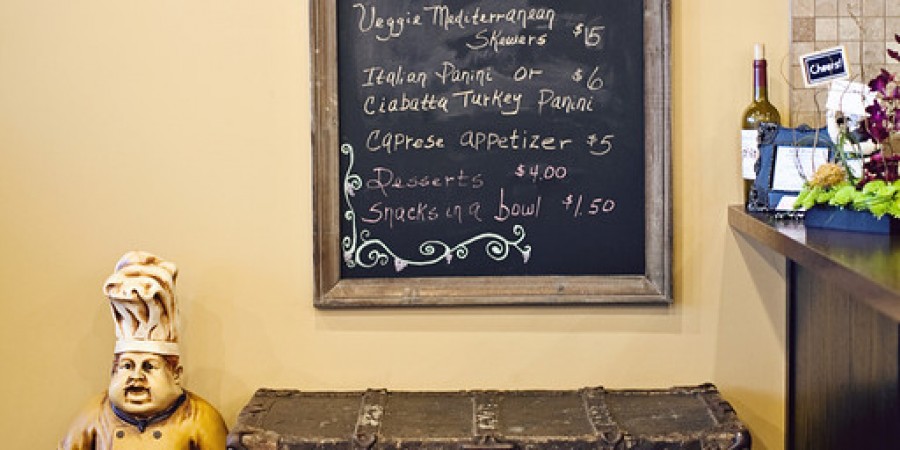 Veggie Mediterranean
Skewers $15
Italian Panini or $6
Ciabatta Turkey Panini
Caprese appetizer $5
Desserts $4.00
Snacks in a bowl $1.50
Cheers!